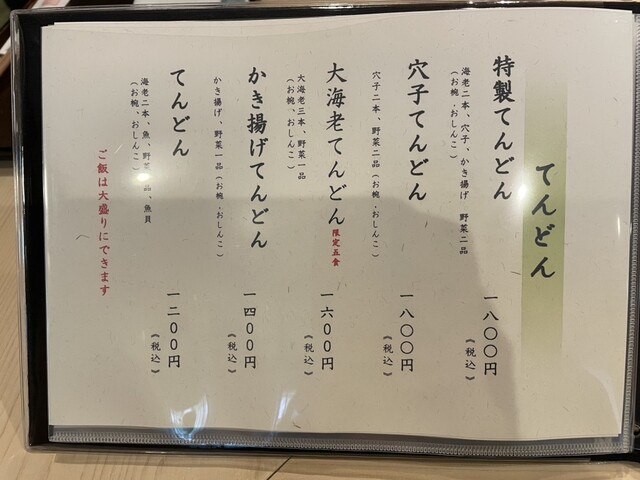 てんどん
特製てんどん
海老二本、穴子、かき揚げ 野菜二品
（お椀、おしんこ）
一八〇〇円
（税込）
穴子てんどん
穴子二本、野菜二品（お椀、おしんこ）
一八〇〇円
（税込）
大海老てんどん 限定五食
大海老三本、野菜一品
（お椀、おしんこ）
一六〇〇円
（税込）
かき揚げてんどん
かき揚げ、野菜一品（お椀、おしんこ）
一四〇〇円
（税込）
てんどん
海老二本、魚、野菜 品、魚貝
（お椀、おしんこ）
一二〇〇円
（税込）
ご飯は大盛りにできます